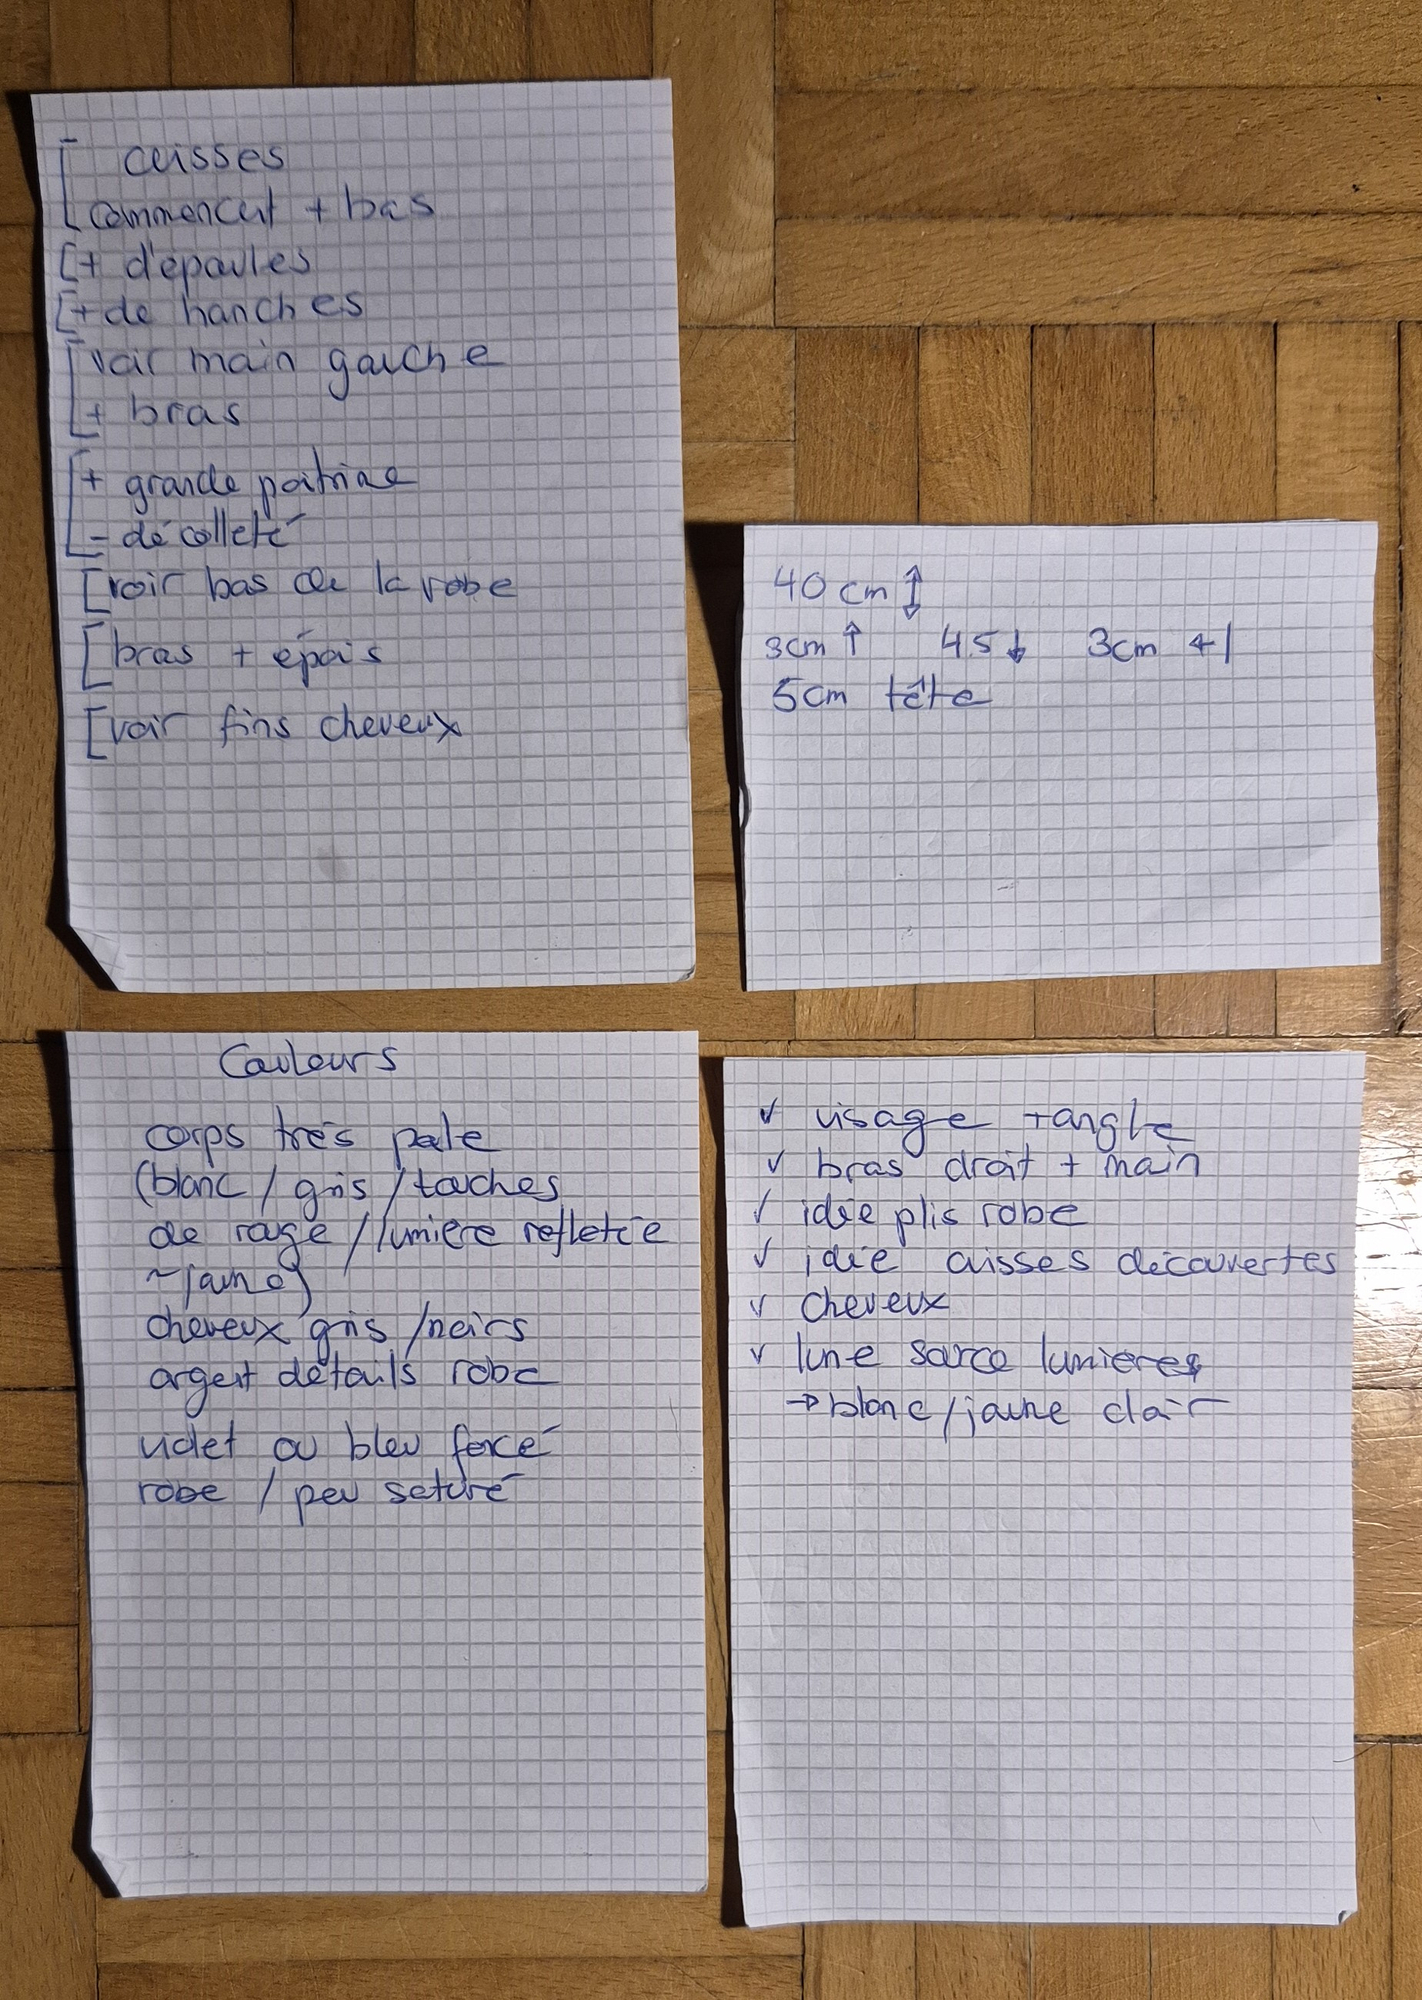 cuisses
commencent + bas
+ d'épaules
+ de hanches
voir main gauche
+ bras
+ grande poitrine
- décolleté
voir bas de la robe
bras + épais
voir fins cheveux
40 cm ↕
3cm ↑ 4.5 ↓ 3cm ←|
5cm tête
Couleurs
corps très pale
(blanc / gris / touches
de rouge / lumière refletée
~jaune)
cheveux gris / noirs
argent détails robe
violet ou bleu foncé
robe / peu saturé
✓ visage + angle
✓ bras droit + main
✓ idée plis robe
✓ idée cuisses découvertes
✓ cheveux
✓ lune source lumieres
→ blanc / jaune clair